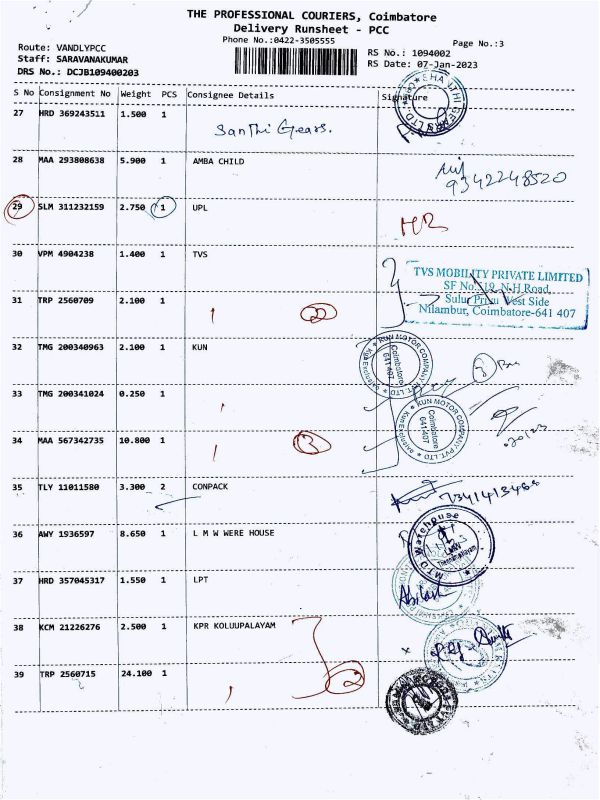 THE PROFESSIONAL COURIERS, Coimbatore
Delivery Runsheet - PCC
Phone No.:0422-3505555
Page No.:3
Route: VANDLYPCC
RS No.: 1094002
Staff: SARAVANAKUMAR
RS Date: 07-Jan-2023
DRS No.: DCJB109400203
S No Consignment No Weight PCS Consignee Details Signature
27 HRD 369243511 1.500 1 Santhi Gears.
28 MAA 293808638 5.900 1 AMBA CHILD
9342248520
29 SLM 311232159 2.750 1 UPL
30 VPM 4904238 1.400 1 TVS
TVS MOBILITY PRIVATE LIMITED
SF No. 19, N.H Road,
Sulur Privu West Side
Nilambur, Coimbatore-641 407
31 TRP 2560709 2.100 1 2
32 TMG 200340963 2.100 1 KUN
KUN MOTOR COMPANY PVT. LTD
Coimbatore
641 407
33 TMG 200341024 0.250 1
KUN MOTOR COMPANY PVT. LTD
Coimbatore
641407
34 MAA 567342735 10.800 1 3
35 TLY 11011580 3.300 2 CONPACK
36 AWY 1936597 8.650 1 L M W WERE HOUSE
MTD Warehouse
37 HRD 357045317 1.550 1 LPT
38 KCM 21226276 2.500 1 KPR KOLUUPALAYAM
39 TRP 2560715 24.100 1 2